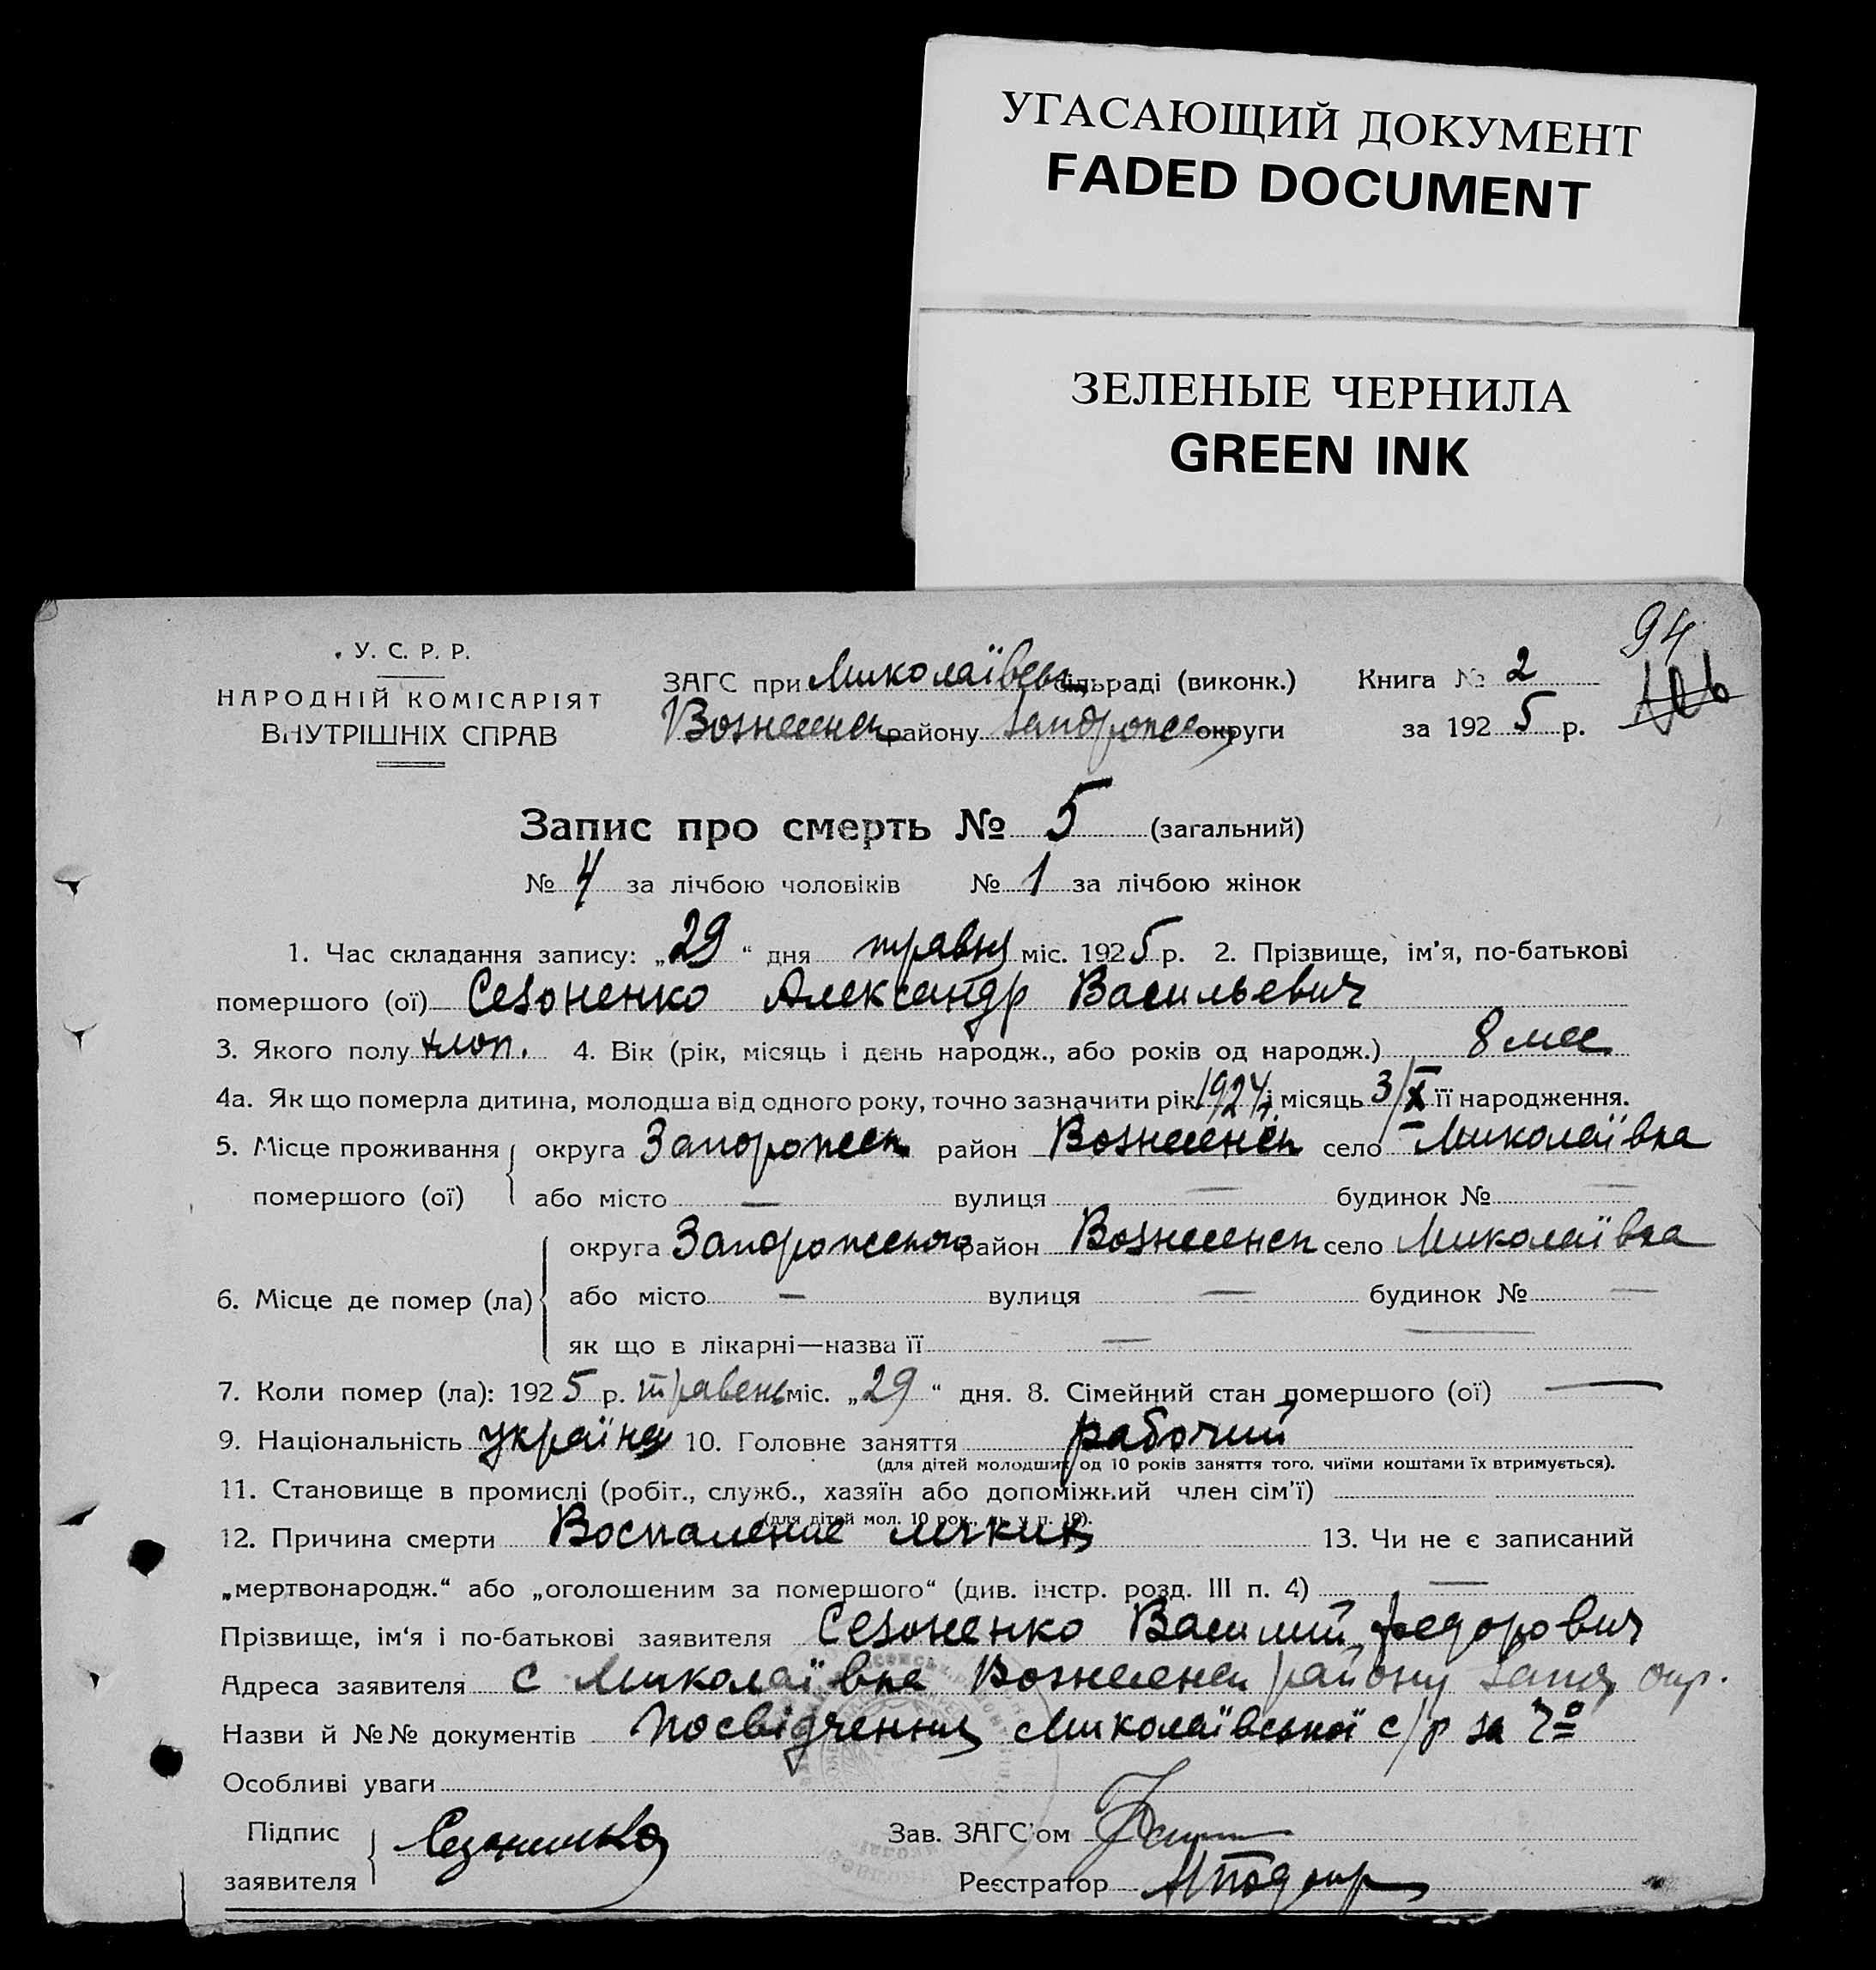 УГАСАЮЩИЙ ДОКУМЕНТ
FADED DOCUMENT
ЗЕЛЕНЫЕ ЧЕРНИЛА
GREEN INK
94
У. С. Р. Р.
НАРОДНІЙ КОМІСАРІЯТ
ВНУТРІШНІХ СПРАВ
ЗАГС при Миколаївськ сільраді (виконк.) Книга № 2
Вознесенськ району Запорожськ округи за 1925 р.
Запис про смерть № 5 (загальний)
№ 4 за лічбою чоловіків № 1 за лічбою жінок
1. Час складання запису: „29“ дня травня міс. 1925 р. 2. Прізвище, ім’я, по-батькові
помершого (ої) Сезоненко Александр Васильевич
3. Якого полу хлоп. 4. Вік (рік, місяць і день народж., або років од народж.) 8 мес
4а. Як що померла дитина, молодша від одного року, точно зазначити рік 1924 і місяць 3/X її народження.
5. Місце проживання округа Запорожськ район Вознесенськ село Миколаївка
помершого (ої) або місто — вулиця — будинок № —
округа Запорожського район Вознесенск село Миколаївка
6. Місце де помер (ла) або місто — вулиця — будинок № —
як що в лікарні—назва її — —
7. Коли помер (ла): 1925 р. травень міс. „29“ дня. 8. Сімейний стан помершого (ої) —
9. Національність україна 10. Головне заняття рабочий
(для дітей молодших од 10 років заняття того, чиїми коштами їх втримується).
11. Становище в промислі (робіт., служб., хазяїн або допоміжний член сім’ї)
(для дітей мол. 10 рок., як у п. 10).
12. Причина смерти Воспаление легких 13. Чи не є записаний
„мертвонародж.“ або „оголошеним за помершого“ (див. інстр. розд. III п. 4) —
Прізвище, ім‘я і по-батькові заявителя Сезоненко Василий Федорович
Адреса заявителя с Миколаївка Вознесенськ району Запор окр.
Назви й №№ документів Посвідчення Миколаївської с/р за №
Особливі уваги
Підпис
заявителя Сезоненко
Зав. ЗАГС’ом
Реєстратор